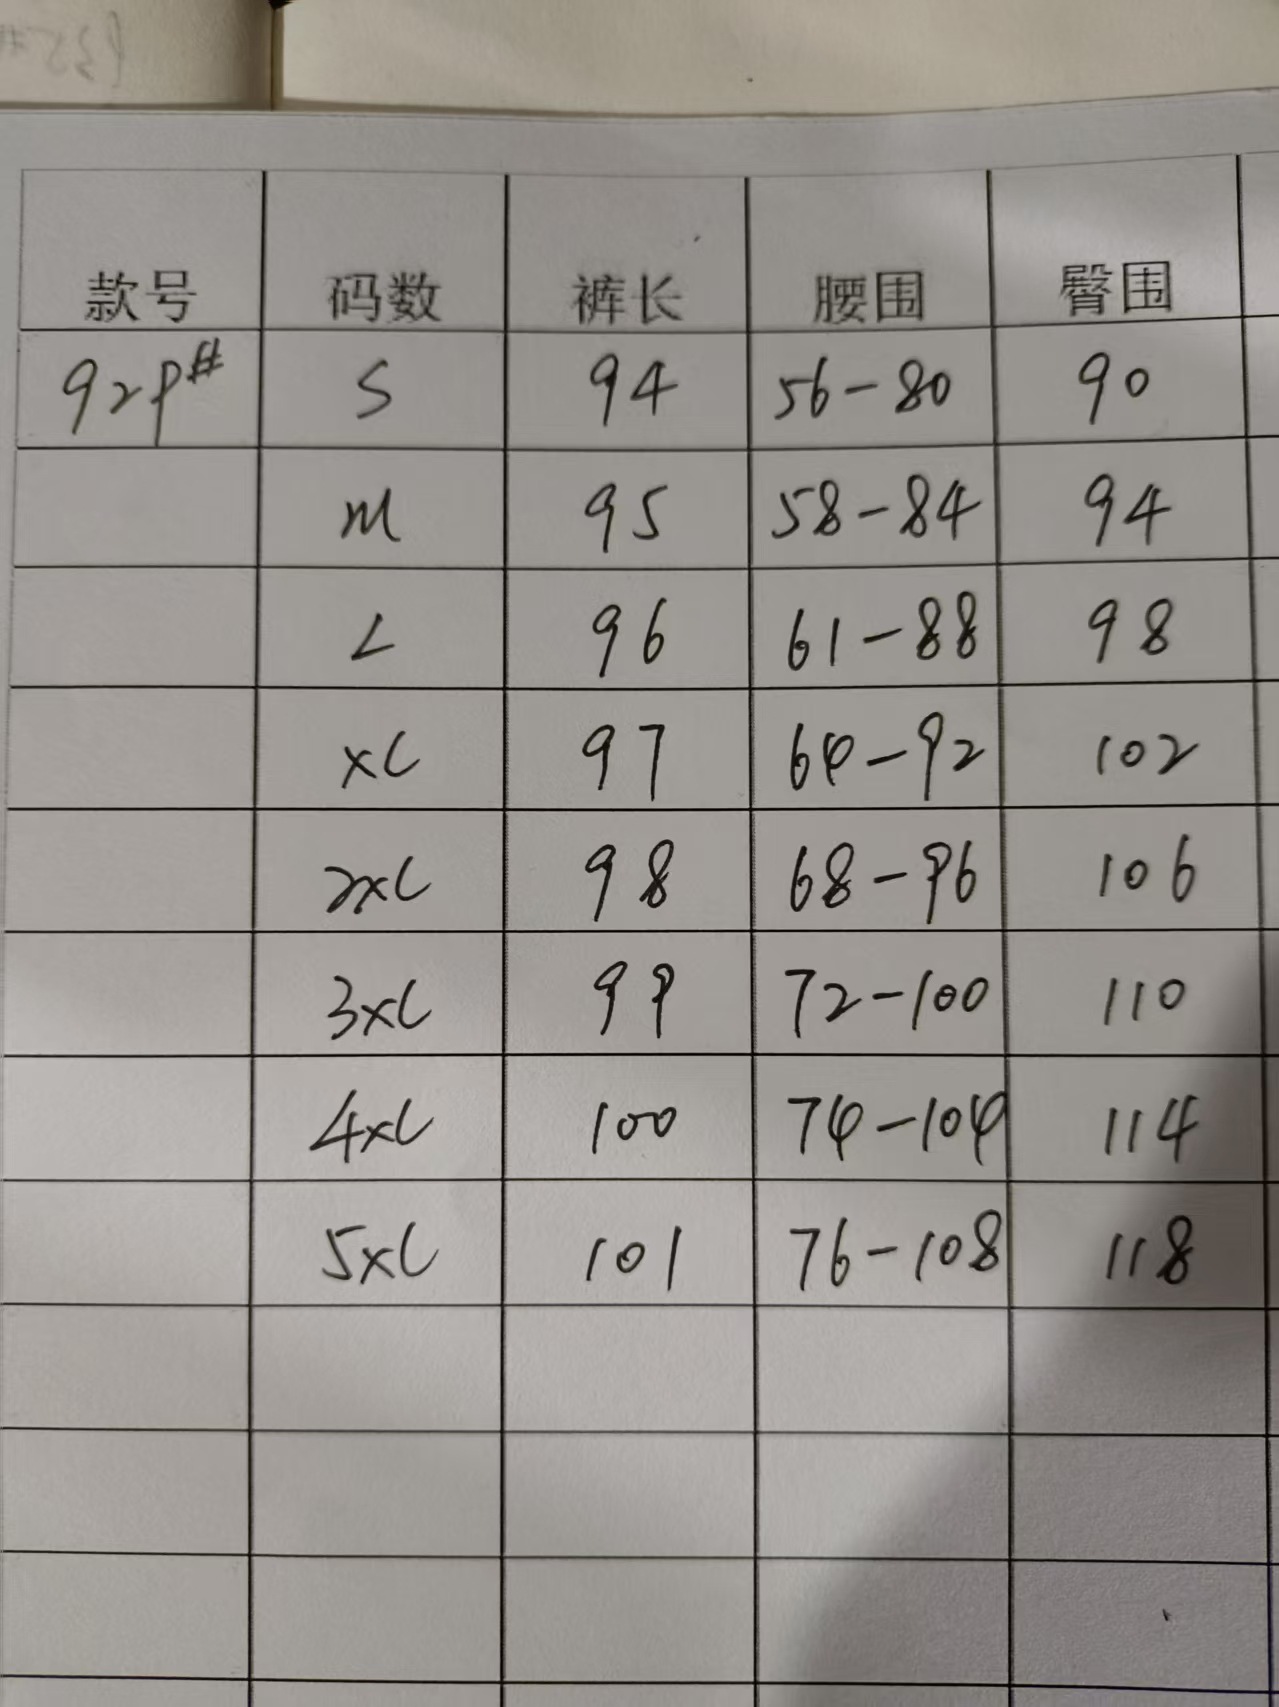 款号 码数 裤长 腰围 臀围
929# S 94 56-80 90
M 95 58-84 94
L 96 61-88 98
XL 97 64-92 102
2XL 98 68-96 106
3XL 99 72-100 110
4XL 100 74-104 114
5XL 101 76-108 118